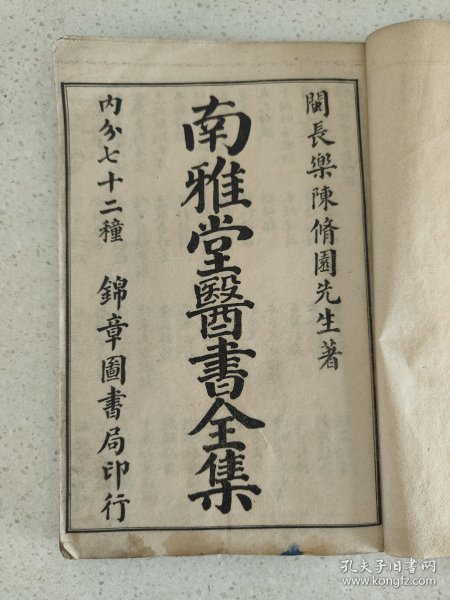 閩長樂陳脩園先生著
南雅堂醫書全集
內分七十二種 錦章圖書局印行
孔夫子旧书网
www.kongfz.com